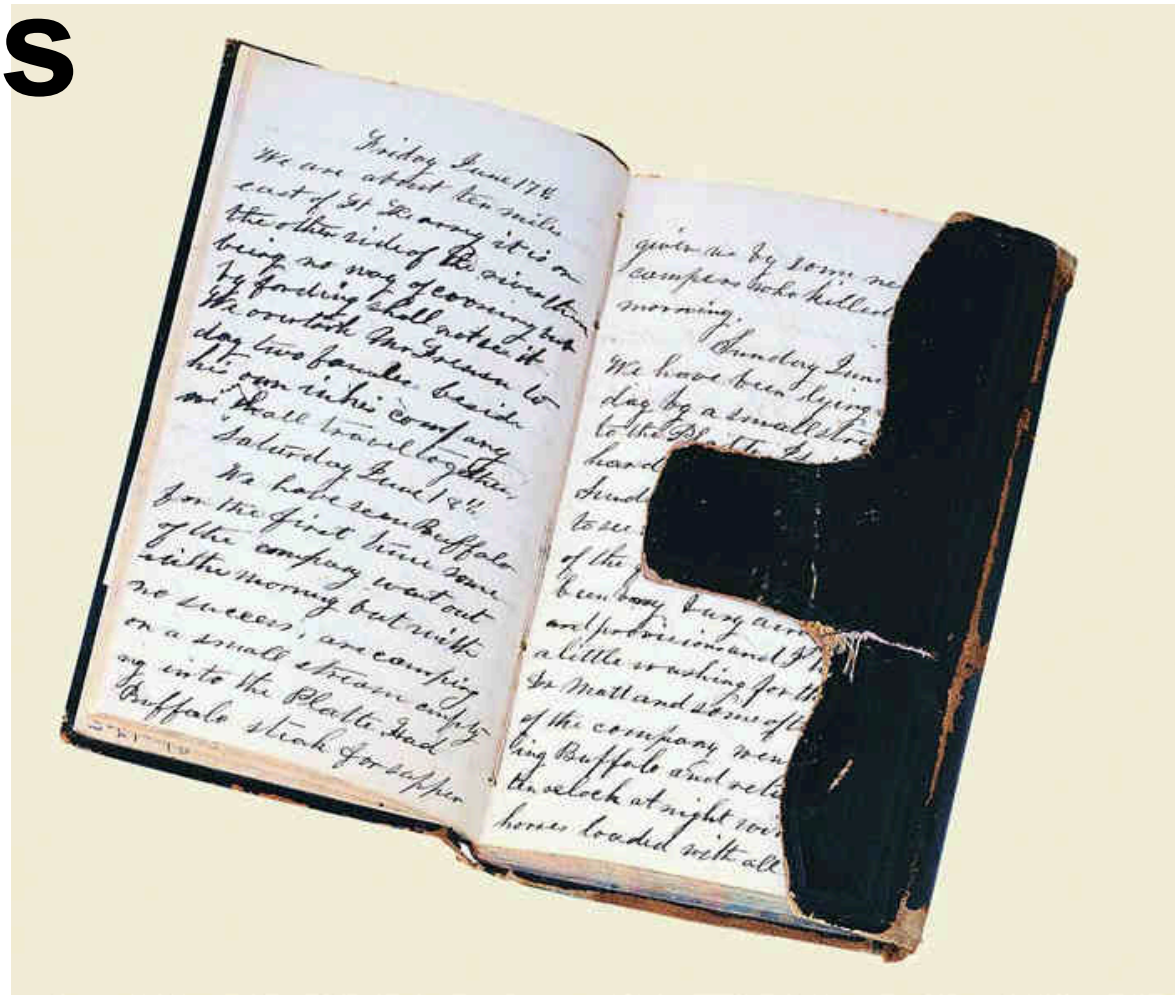 s
Friday June 17th
We are about ten miles
east of Ft Kearny it is on
the other side of the river there
being no way of crossing but
by fording shall not see it.
We overtook Mr Freeman to
day two families beside
his own in his company
we shall travel together,
Saturday June 18th
We have seen Buffalo
for the first time some
of the company went out
in the morning but with
no success; are camping
on a small stream empty-
ng into the Platte Had
Buffalo steak for supper
given us by some
campers who killed
morning.
Sunday June
We have been lying
day by a small
to the
hard
to see
of the
been busy
and provisions and I
a little washing for
Dr Matt and some of
of the company
ing Buffalo and
ten oclock at night
horses loaded with all